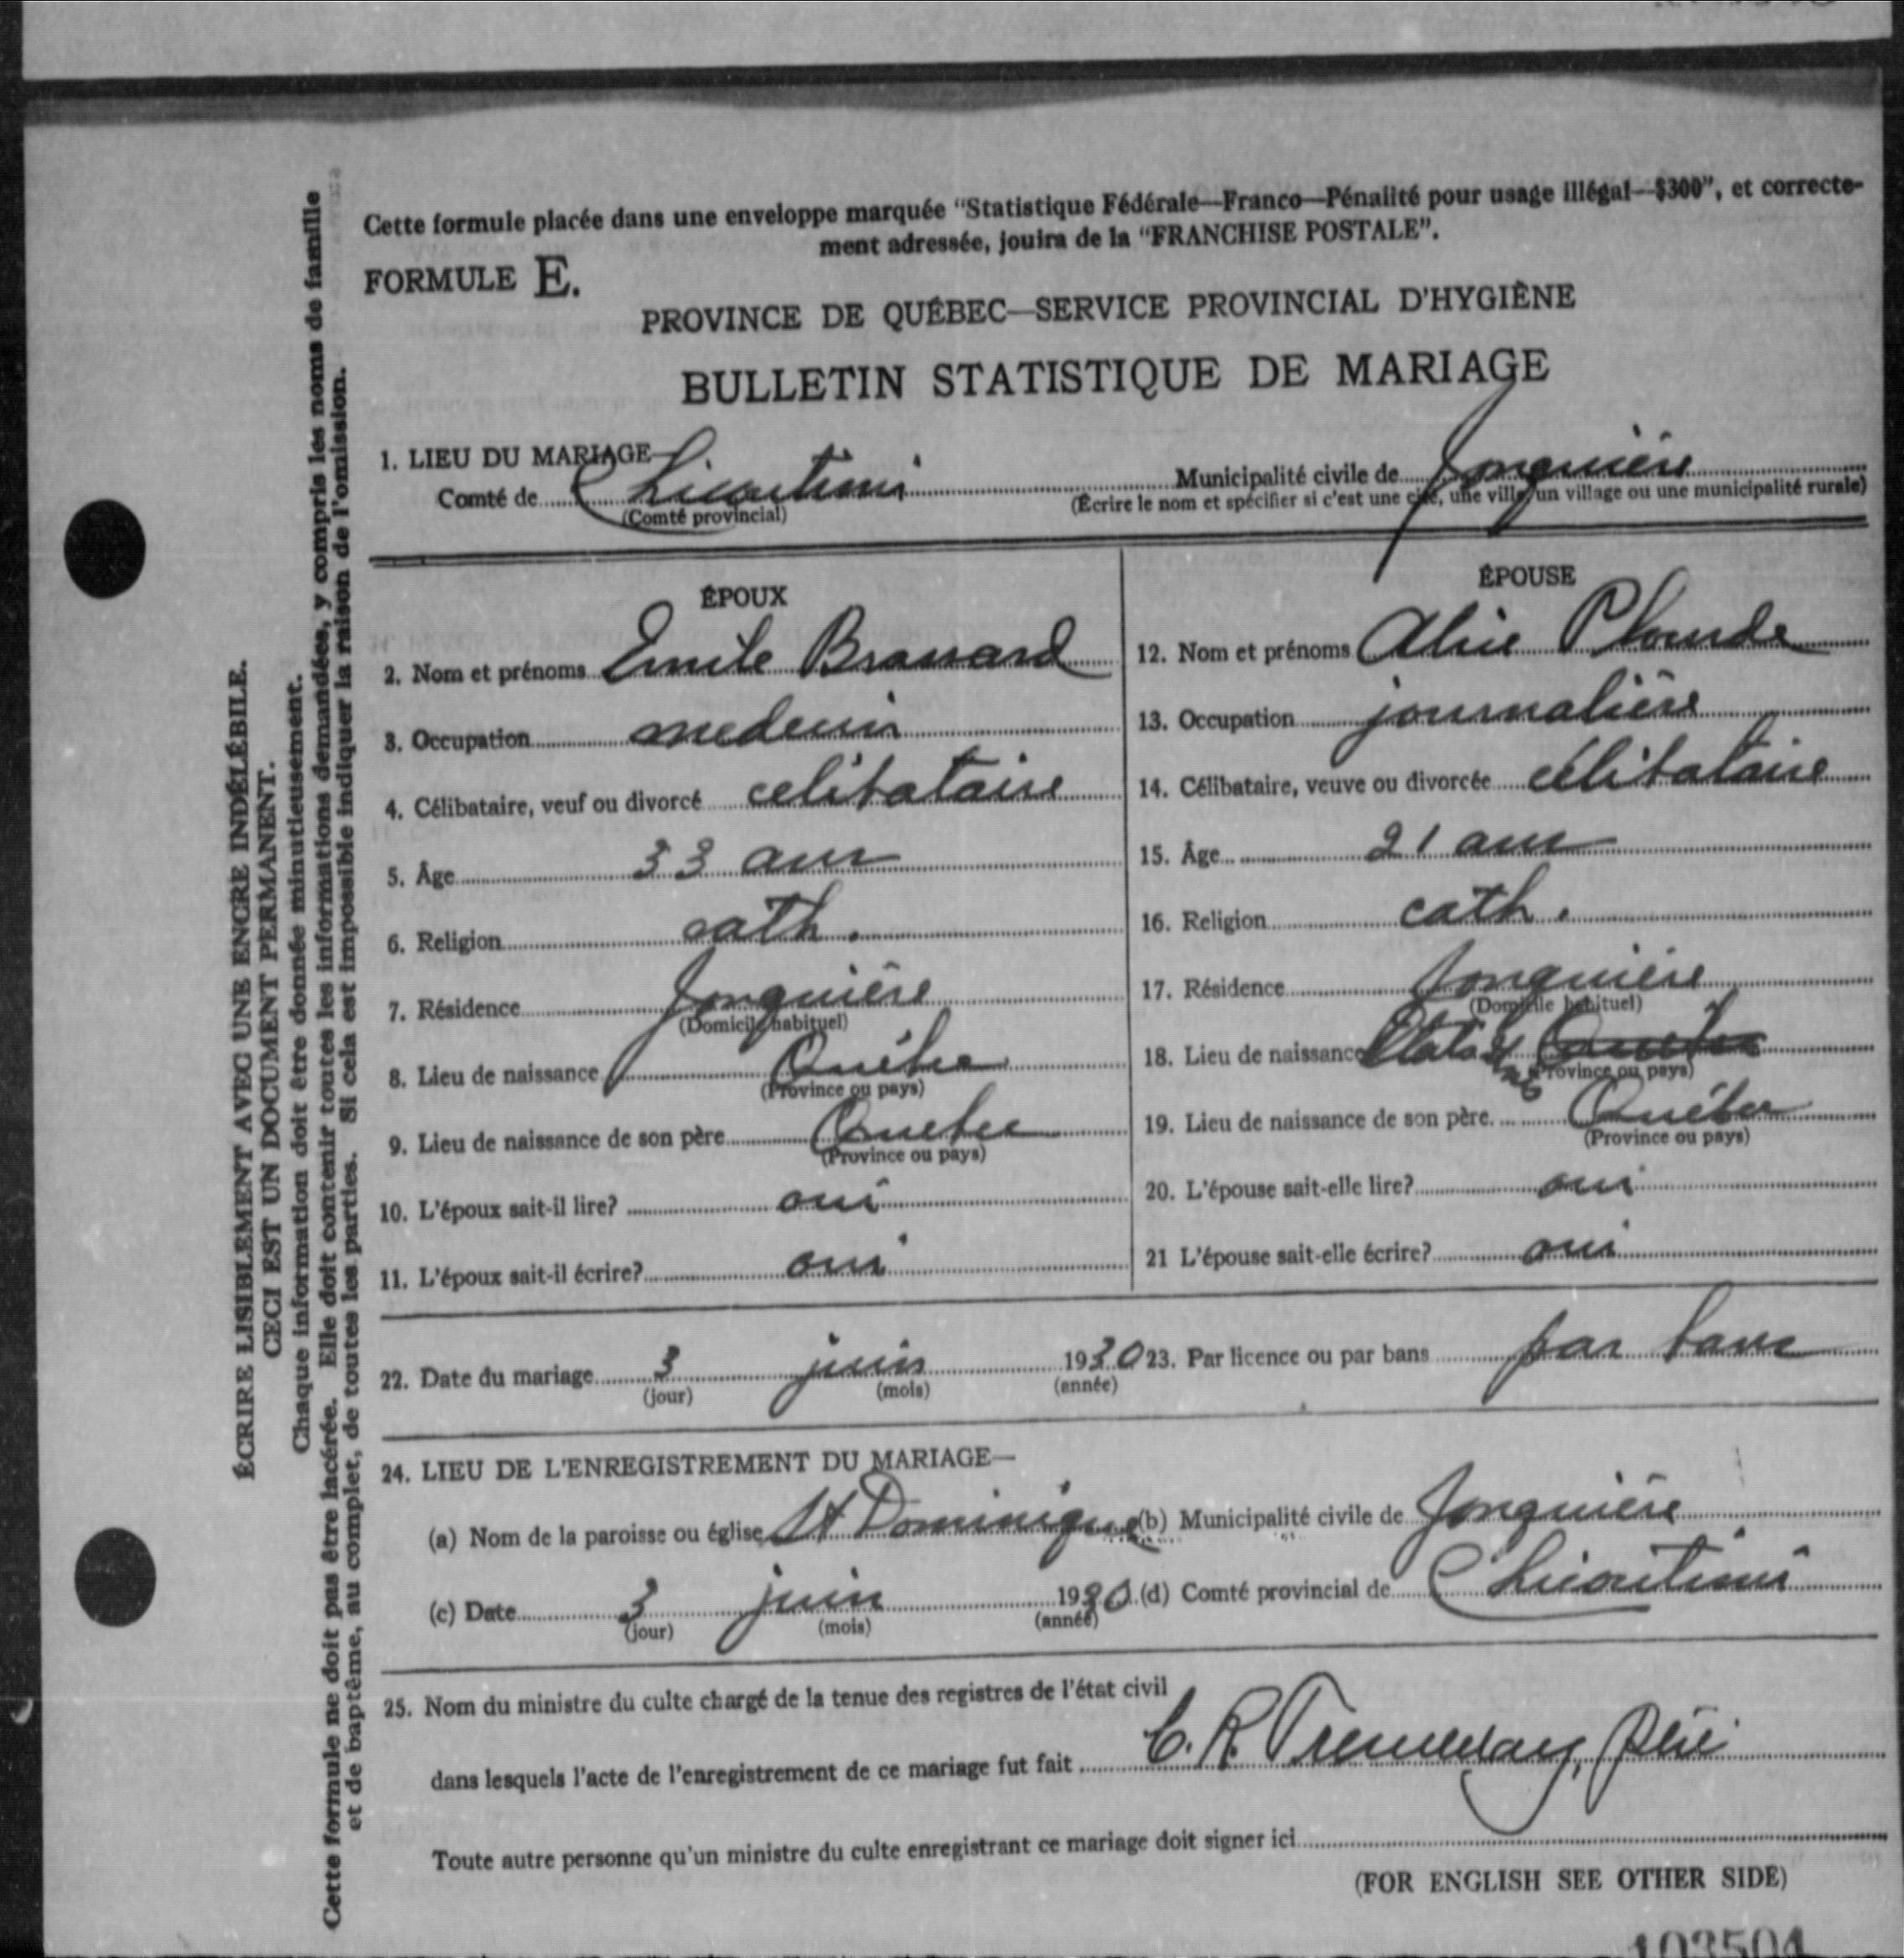 Cette formule placée dans une enveloppe marquée "Statistique Fédérale—Franco—Pénalité pour usage illégal—$300", et correcte-
ment adressée, jouira de la "FRANCHISE POSTALE".
FORMULE E.
PROVINCE DE QUÉBEC—SERVICE PROVINCIAL D'HYGIÈNE
BULLETIN STATISTIQUE DE MARIAGE
1. LIEU DU MARIAGE—
Comté de Chicoutimi Municipalité civile de Jonquière
(Comté provincial) (Écrire le nom et spécifier si c'est une cité, une ville, un village ou une municipalité rurale)
ÉPOUX
2. Nom et prénoms Emile Brassard
3. Occupation medecin
4. Célibataire, veuf ou divorcé celibataire
5. Âge 33 ans
6. Religion cath.
7. Résidence Jonquière
(Domicile habituel)
8. Lieu de naissance Québec
(Province ou pays)
9. Lieu de naissance de son père Quebec
(Province ou pays)
10. L'époux sait-il lire? oui
11. L'époux sait-il écrire? oui
ÉPOUSE
12. Nom et prénoms Alice Plourde
13. Occupation journalière
14. Célibataire, veuve ou divorcée célibataire
15. Âge 21 ans
16. Religion cath.
17. Résidence Jonquière
(Domicile habituel)
18. Lieu de naissance Etats Unis Québec
(Province ou pays)
19. Lieu de naissance de son père Québec
(Province ou pays)
20. L'épouse sait-elle lire? oui
21 L'épouse sait-elle écrire? oui
22. Date du mariage 3 juin 1930 23. Par licence ou par bans par bans
(jour) (mois) (année)
24. LIEU DE L'ENREGISTREMENT DU MARIAGE—
(a) Nom de la paroisse ou église St Dominique (b) Municipalité civile de Jonquière
(c) Date 3 juin 1930 (d) Comté provincial de Chicoutimi
(jour) (mois) (année)
25. Nom du ministre du culte chargé de la tenue des registres de l'état civil
dans lesquels l'acte de l'enregistrement de ce mariage fut fait C. R. Tremblay, ptre
Toute autre personne qu'un ministre du culte enregistrant ce mariage doit signer ici
(FOR ENGLISH SEE OTHER SIDE)
103504
ÉCRIRE LISIBLEMENT AVEC UNE ENCRE INDÉLÉBILE.
CECI EST UN DOCUMENT PERMANENT.
Chaque information doit être donnée minutieusement.
Cette formule ne doit pas être lacérée. Elle doit contenir toutes les informations demandées, y compris les noms de famille
et de baptême, au complet, de toutes les parties. Si cela est impossible indiquer la raison de l'omission.